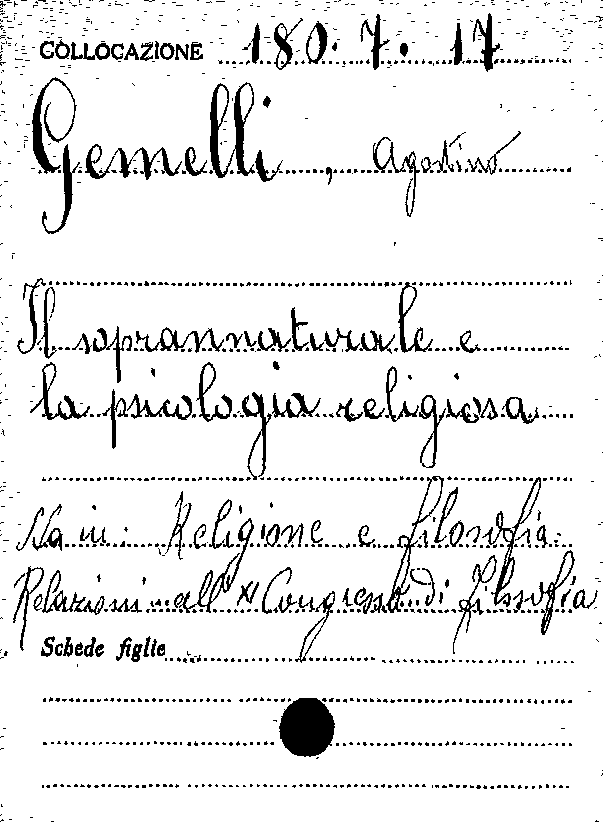 COLLOCAZIONE 180. 7. 17
Gemelli, Agostino
Il soprannaturale e
la psicologia religiosa
Sta in: Religione e filosofia.
Relazioni all' XI Congresso di filosofia
Schede figlie